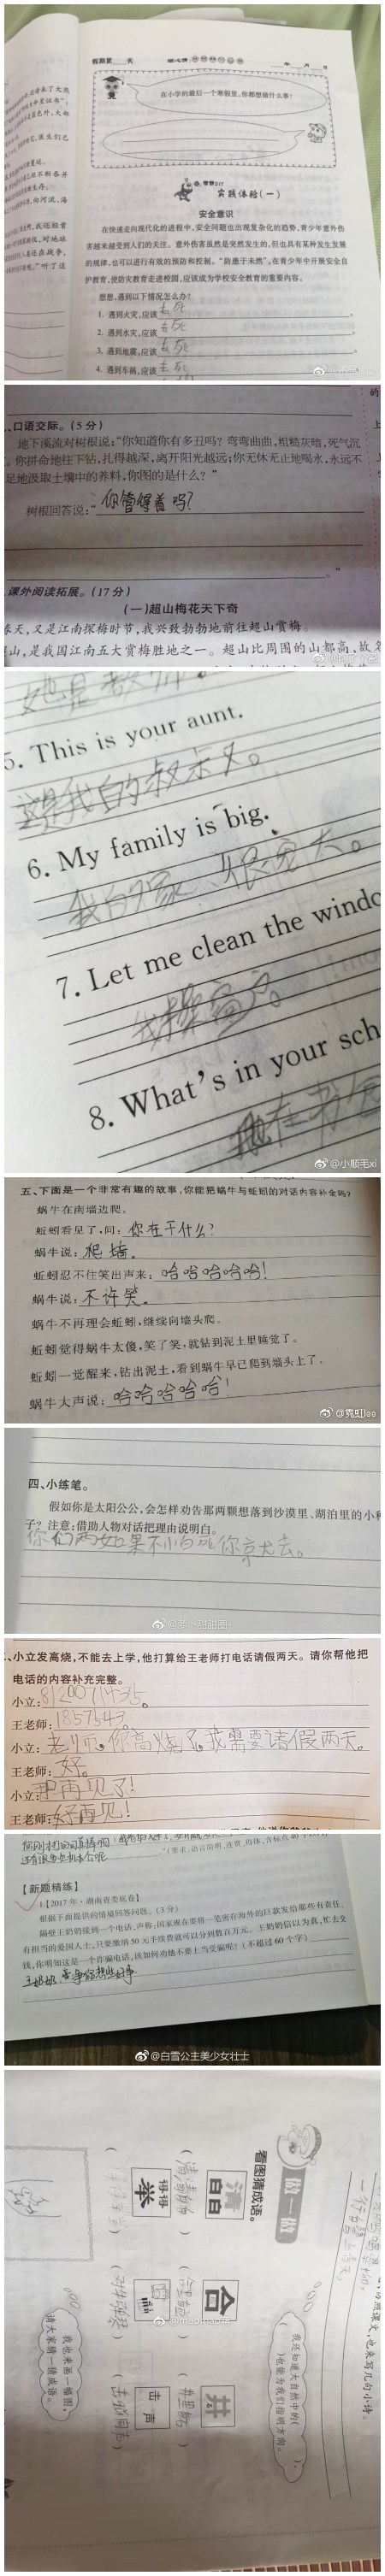 在小学的最后一个寒假里,你都想做什么事?
实践体验(一)
安全意识
在快速走向现代化的进程中,安全问题也出现复杂化的趋势,青少年意外伤
害越来越受到人们的关注。意外伤害虽然是突然发生的,但也具有某种发生发展
的规律,也可以进行有效的预防和控制。“防患于未然”,在青少年中开展安全自
护教育,使防灾教育走进校园,应该成为学校安全教育的重要内容。
想想,遇到以下情况怎么办?
1. 遇到火灾,应该去死。
2. 遇到水灾,应该去死
3. 遇到地震,应该去死
4. 遇到车祸,应该去死
、口语交际。(5分)
地下溪流对树根说:“你知道你有多丑吗?弯弯曲曲,粗糙灰暗,死气沉
。你拼命地往下钻,扎得越深,离开阳光越远;你无休无止地喝水,永远不
足地汲取土壤中的养料,你图的是什么?”
树根回答说:“你管得着吗?
。”
课外阅读拓展。(17分)
(一)超山梅花天下奇
春天,又是江南探梅时节,我兴致勃勃地前往超山赏梅。
山,是我国江南五大赏梅胜地之一。超山比周围的山都高,故
5. This is your aunt.
这是我的叔叔。
6. My family is big.
我的家很宽大。
7. Let me clean the windo
我擦窗户。
8. What's in your sch
@小顺毛xi
五、下面是一个非常有趣的故事,你能把蜗牛与蚯蚓的对话内容补全吗?
蜗牛在南墙边爬。
蚯蚓看见了,问:你在干什么?
蜗牛说:爬墙。
蚯蚓忍不住笑出声来:哈哈哈哈哈!
蜗牛说:不许笑。
蜗牛不再理会蚯蚓,继续向墙头爬。
蚯蚓觉得蜗牛太傻,笑了笑,就钻到泥土里睡觉了。
蚯蚓一觉醒来,钻出泥土,看到蜗牛早已爬到墙头上了。
蜗牛大声说:哈哈哈哈哈!
@霓虹lee
四、小练笔。
假如你是太阳公公,会怎样劝告那两颗想落到沙漠里、湖泊里的小种
子?注意:借助人物对话把理由说明白。
你们两如果不怕死你就去。
、小立发高烧,不能去上学,他打算给王老师打电话请假两天。请你帮他把
电话的内容补充完整。
小立:
王老师:1857543
小立:老师,你高烧了。我需要请假两天。
王老师:好。
小立:再见了!
王老师:好再见!
【新题精练】
1.【2017年·湖南省娄底卷】
根据下面提供的情境回答问题。(3分)
隔壁王奶奶接到一个电话,声称:国家现在要将一笔密存海外的巨款发给那些有责任、
有担当的爱国人士,只要缴纳50元手续费就可以分到数百万元。王奶奶信以为真,忙去交
钱,你明知这是一个诈骗电话,该如何劝她不要上当受骗呢?(不超过60个字)
@白雪公主美少女壮士
做一做
看图猜成语。
清
得得
举
合
井
击 声
我还知道大自然中的( ),
( )也能为我们指明方向。
我也来画一幅图,
请大家猜一猜成语。